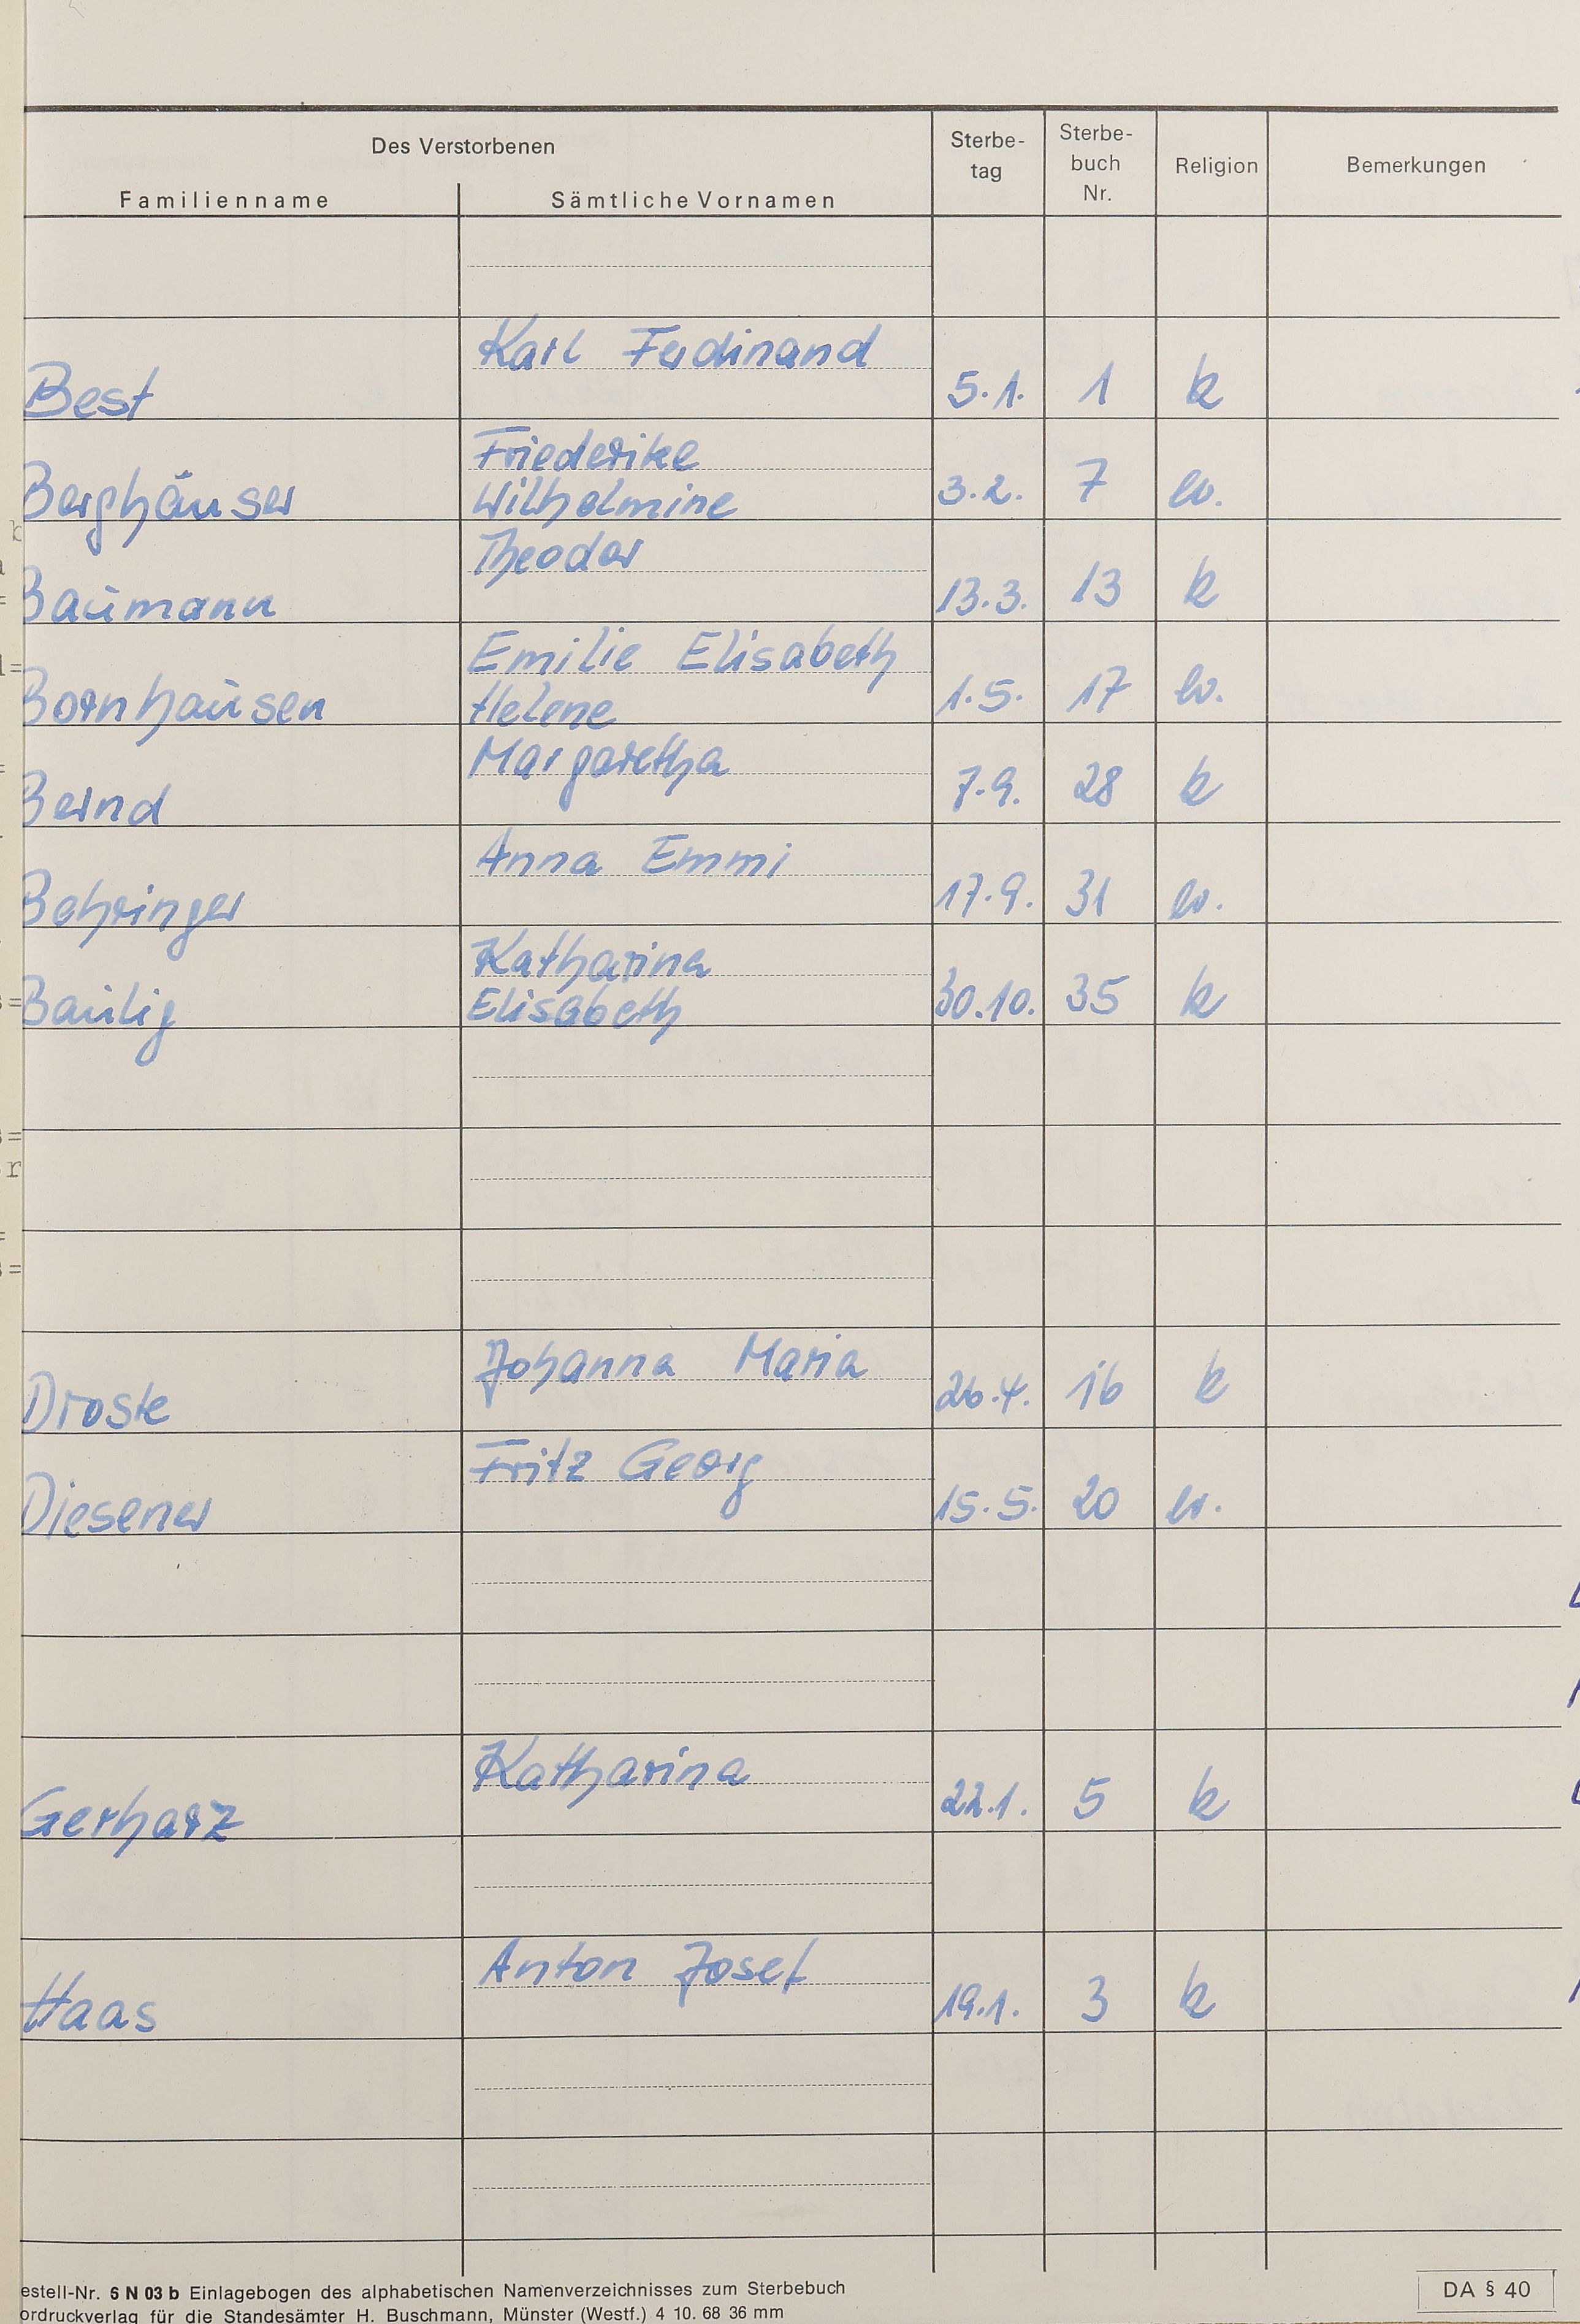 Des Verstorbenen
Familienname
Sämtliche Vornamen
Sterbe-
tag
Sterbe-
buch
Nr.
Religion
Bemerkungen
Karl Ferdinand
Best 5.1. 1 k
Friederike
Berghäuser Wilhelmine 3.2. 7 ev.
Theodor
Baumann 13.3. 13 k
Emilie Elisabeth
Bornhausen Helene 1.5. 17 ev.
Margaretha
Bernd 7.9. 28 k
Anna Emmi
Behringer 17.9. 31 ev.
Katharina
Baulig Elisabeth 30.10. 35 k
Johanna Maria
Droste 26.4. 16 k
Fritz Georg
Diesener 15.5. 20 ev.
Katharina
Gerharz 22.1. 5 k
Anton Josef
Haas 19.1. 3 k
estell-Nr. 6 N 03 b Einlagebogen des alphabetischen Namenverzeichnisses zum Sterbebuch
ordruckverlag für die Standesämter H. Buschmann, Münster (Westf.) 4 10. 68 36 mm
DA § 40